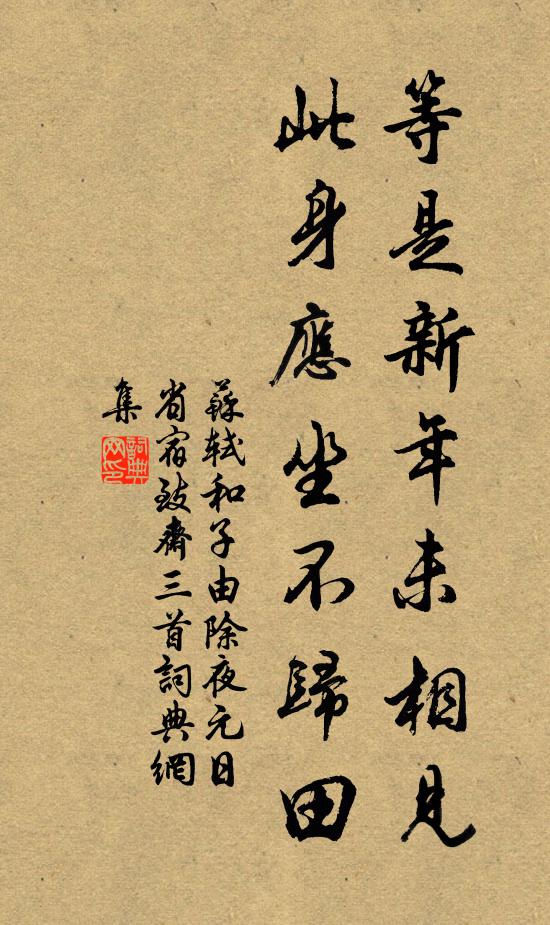 等是新年未相見
此身應坐不歸田
蘇軾和子由除夜元日
省宿致齋三首詞典網
集
詞典網印